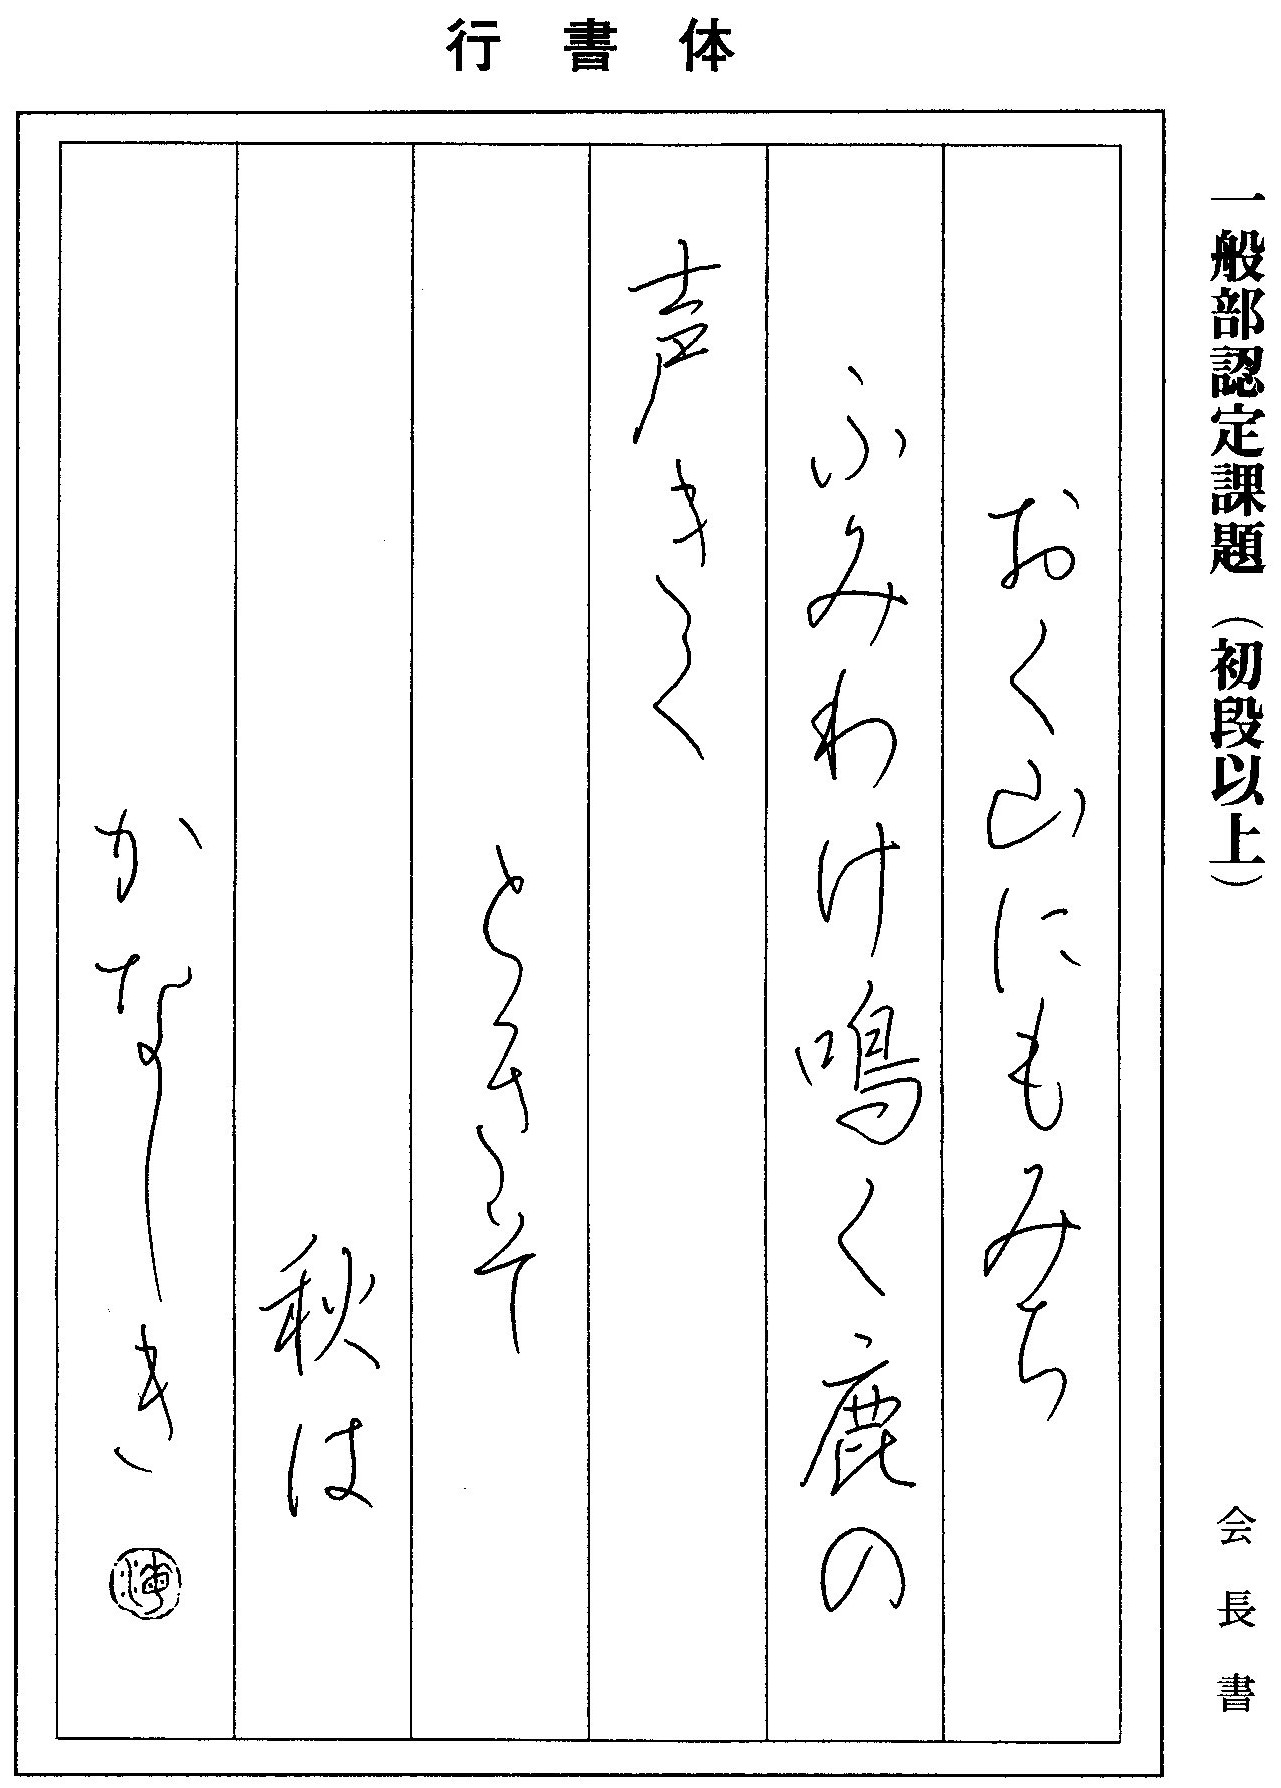 行書体
一般部認定課題（初段以上）
会長書
おく山にもみち
ふみわけ鳴く鹿の
声きく
ときこそ
秋は
かなしき